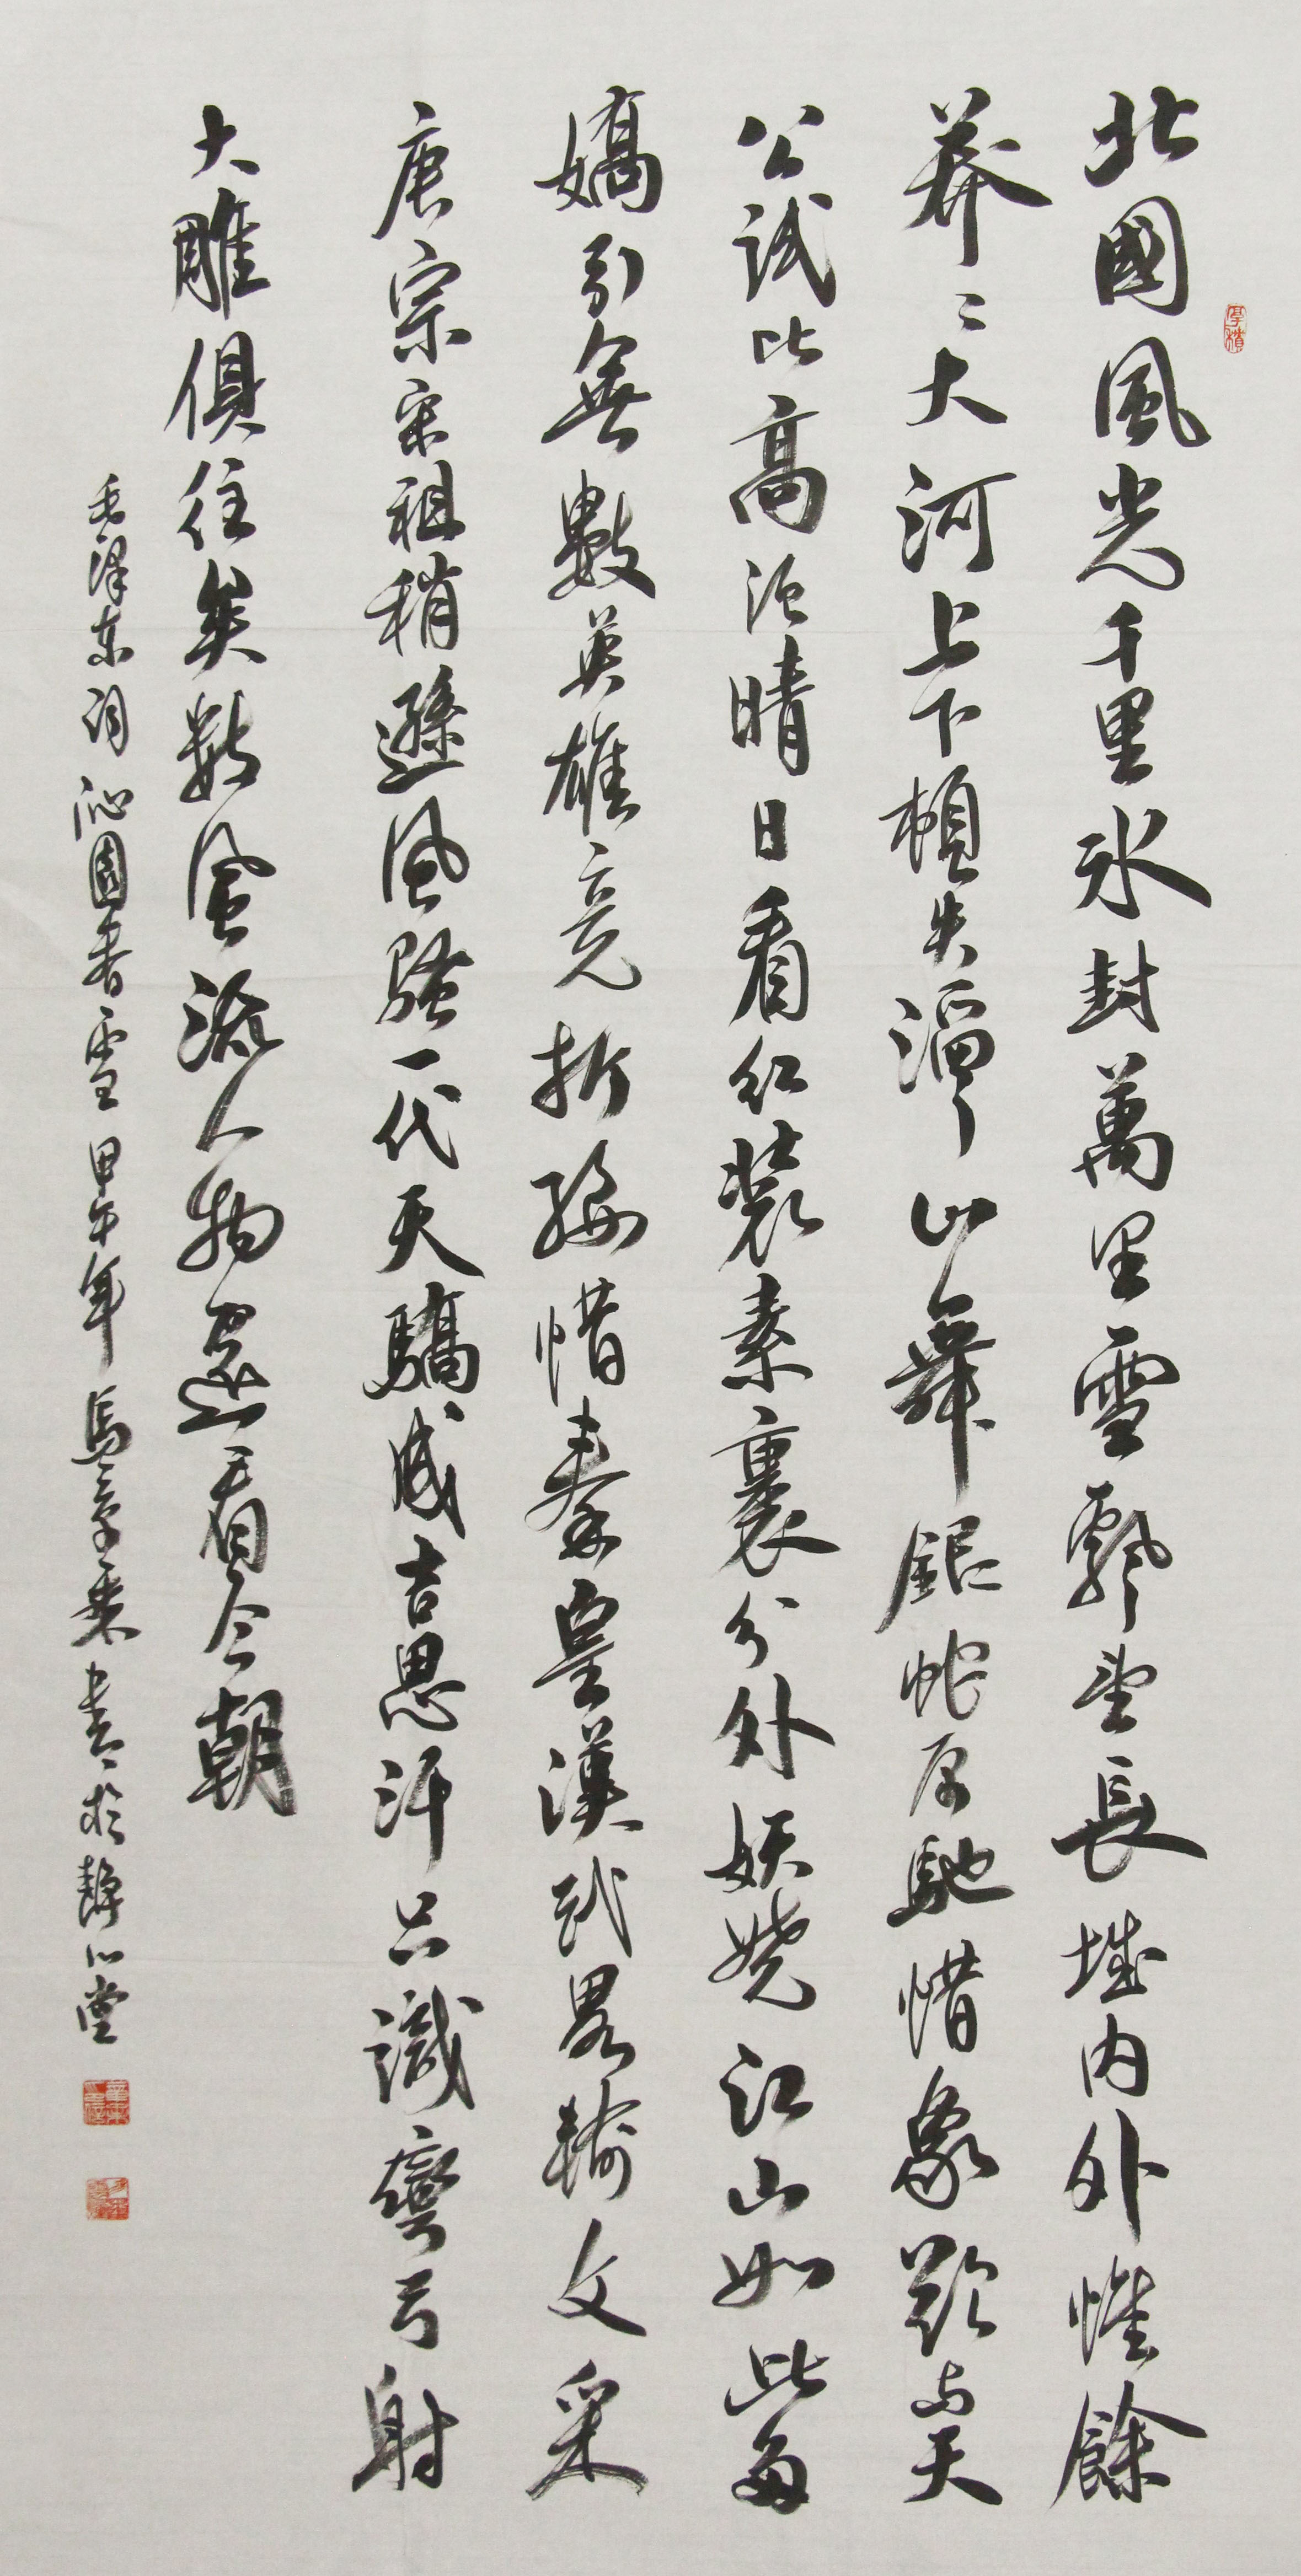 厚積
北國風光千里冰封萬里雪飄望長城內外惟餘
莽〻大河上下頓失滔〻山舞銀蛇原馳蜡象欲與天
公試比高須晴日看紅裝素裹分外妖嬈江山如此多
嬌引無數英雄竞折腰惜秦皇漢武畧輸文采
唐宗宋祖稍遜風騷一代天驕成吉思汗只識彎弓射
大雕俱往矣數風流人物還看今朝
毛澤東詞沁園春雪甲午年馬章乘書於靜心堂